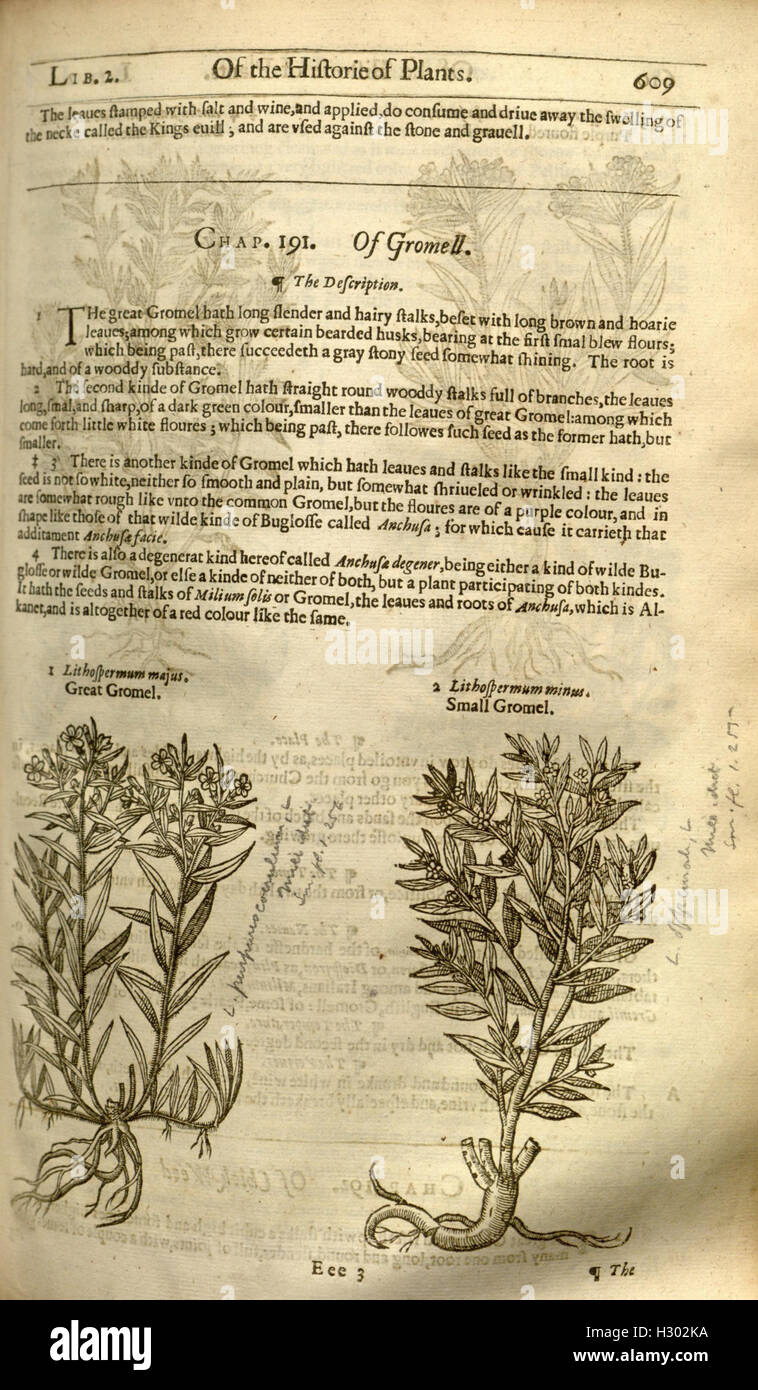 LIB. 2. Of the Hiſtorie of Plants. 609
The leaues ſtamped with ſalt and wine,and applied,do conſume and driue away the ſwelling of
the necke called the Kings euill ; and are vſed againſt the ſtone and grauell.
CHAP. 191. Of Gromell.
¶ The Deſcription.
1 THe great Gromel hath long ſlender and hairy ſtalks,beſet with long brown and hoarie
leaues;among which grow certain bearded husks,bearing at the firſt ſmal blew flours;
which being paſt,there ſucceedeth a gray ſtony ſeed ſomewhat ſhining. The root is
hard,and of a wooddy ſubſtance.
2 The ſecond kinde of Gromel hath ſtraight round wooddy ſtalks full of branches,the leaues
long,ſmal,and ſharp,of a dark green colour,ſmaller than the leaues of great Gromel:among which
come forth little white floures ; which being paſt, there followes ſuch ſeed as the former hath,but
ſmaller.
‡ 3 There is another kinde of Gromel which hath leaues and ſtalks like the ſmall kind : the
ſeed is not ſo white,neither ſo ſmooth and plain, but ſomewhat ſhriueled or wrinkled : the leaues
are ſomewhat rough like vnto the common Gromel,but the floures are of a purple colour,and in
ſhape like thoſe of that wilde kinde of Bugloſſe called Anchuſa ; for which cauſe it carrieth that
additament Anchuſæ facie.
4 There is alſo a degenerat kind hereof called Anchuſa degener,being either a kind of wilde Bu-
gloſſe or wilde Gromel,or elſe a kinde of neither of both, but a plant participating of both kindes.
It hath the ſeeds and ſtalks of Milium ſolis or Gromel,the leaues and roots of Anchuſa,which is Al-
kanet,and is altogether of a red colour like the ſame.
1 Lithoſpermum majus.
Great Gromel.
2 Lithoſpermum minus.
Small Gromel.
L. purpureo coeruleum L
L. officinale, L
Eee 3 ¶ The
alamy
Image ID: H302KA
www.alamy.com